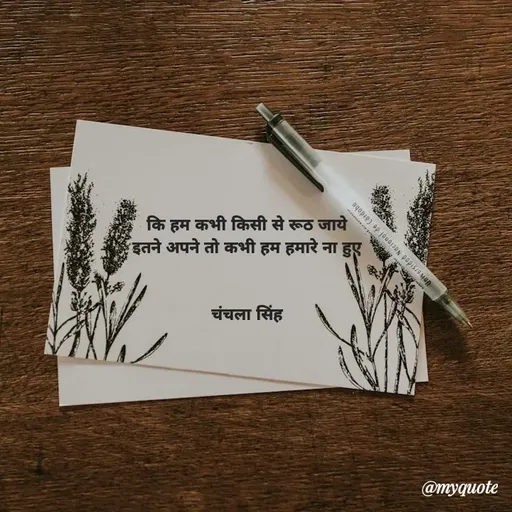 कि हम कभी किसी से रूठ जाये
इतने अपने तो कभी हम हमारे ना हुए
चंचला सिंह
@myquote